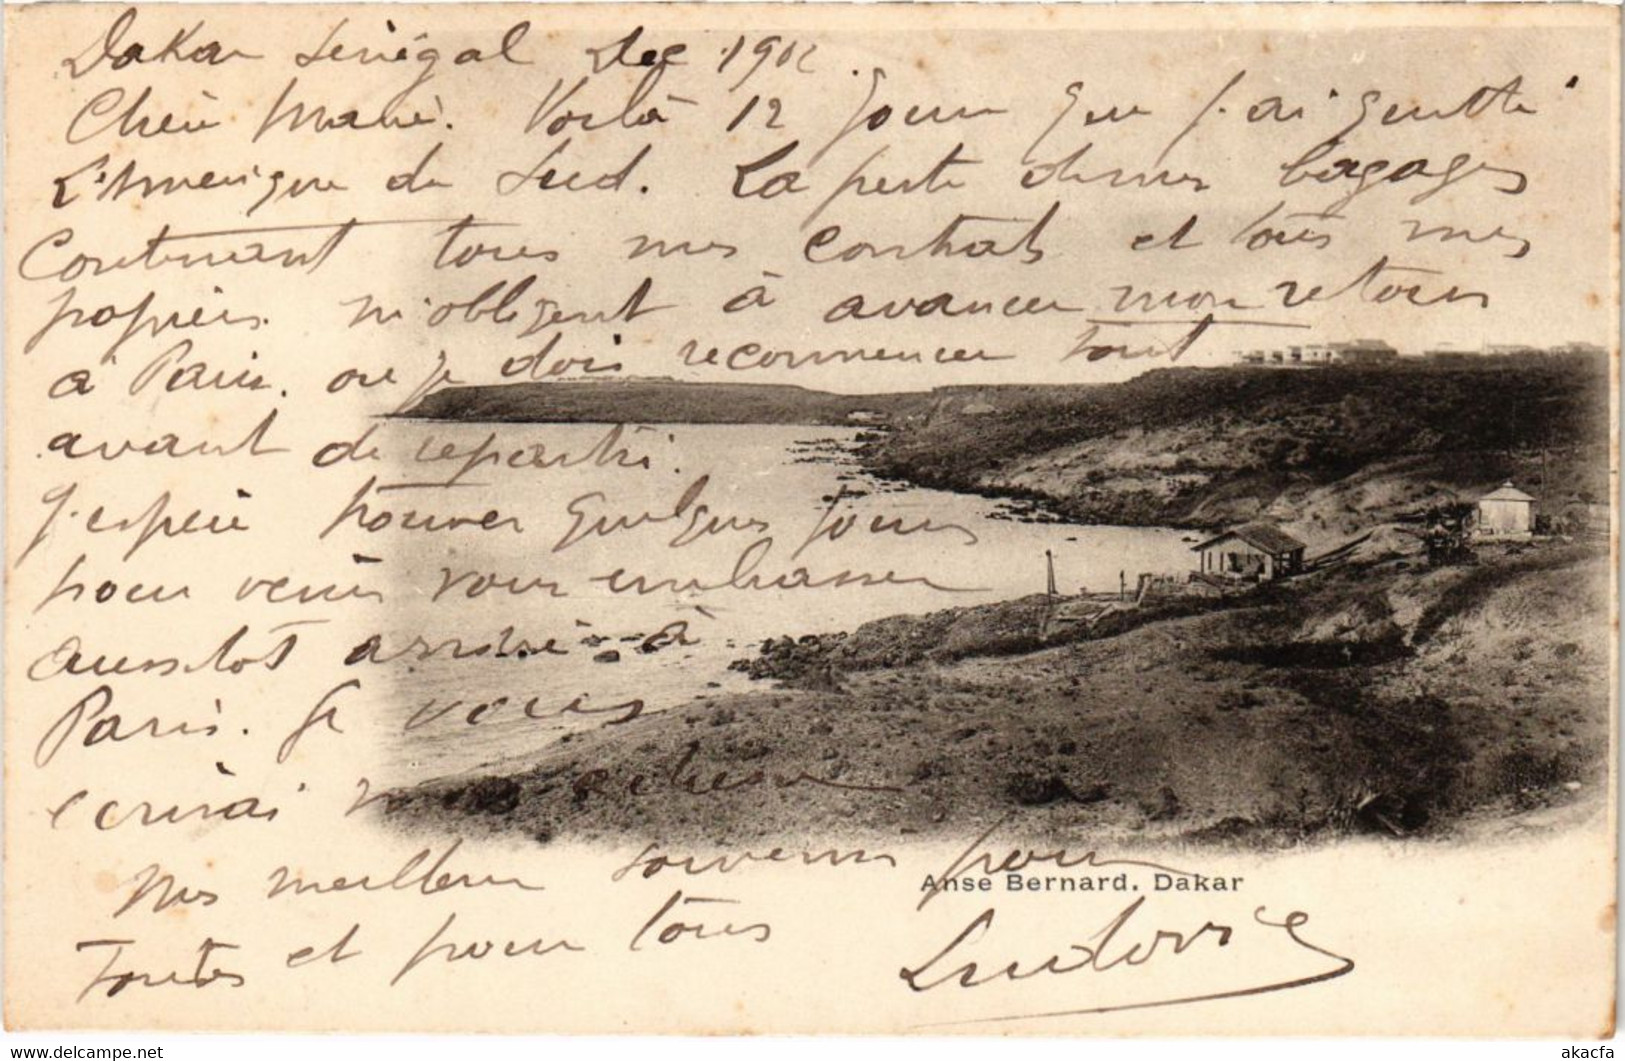 Dakar Sénégal Dec 190
Chère Marie. Voilà 12 jours que j'ai quitté
L'Amerique du Sud. La perte de mes bagages
contenant tous mes contrats et tous mes
papiers m'obligent à avancer mon retour
à Paris. ou je dois recommencer tout
avant de repartir.
J'espère trouver quelques jours
pour venir vous embrasser
aussitot arrivé à
Paris. Je vous
ecrirai
Mes meilleurs souvenirs pour
Anse Bernard. Dakar
Toutes et pour tous
Ludovic
delcampe.net
akacfa